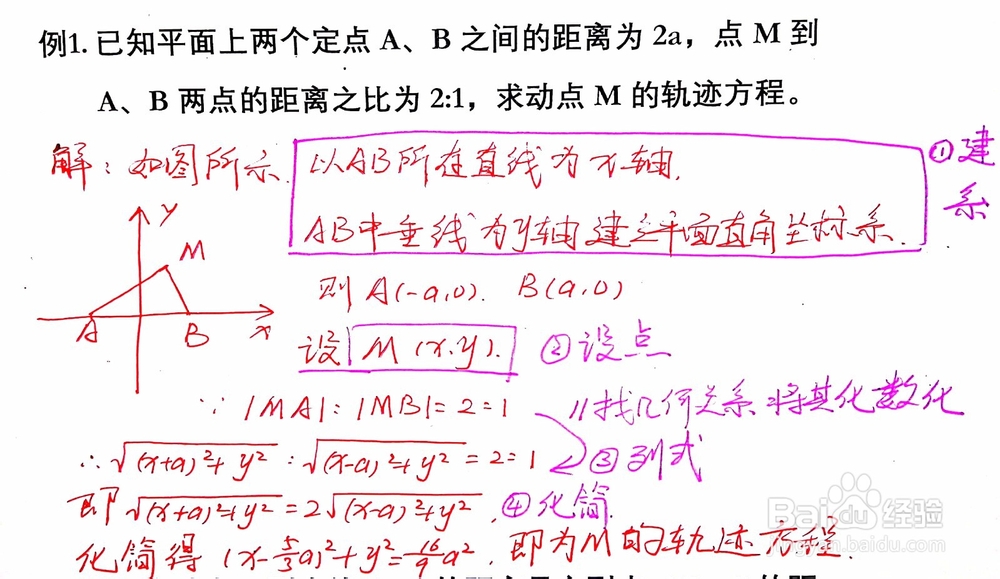 例1. 已知平面上两个定点 A、B 之间的距离为 2a，点 M 到
A、B 两点的距离之比为 2:1，求动点 M 的轨迹方程。
解：如图所示. 以AB所在直线为x轴, ①建系
AB中垂线为y轴建立平面直角坐标系.
y
M
A B x
则 A(-a,0). B(a,0)
设 M(x,y). ②设点
∵ |MA|:|MB|=2:1 //找几何关系 将其化数化
∴ √(x+a)²+y² : √(x-a)²+y² = 2:1 ③列式
即 √(x+a)²+y² = 2√(x-a)²+y². ④化简.
化简得 (x-5/3a)²+y²=16/9a². 即为M的轨迹方程.
Baidu经验
jingyan.baidu.com